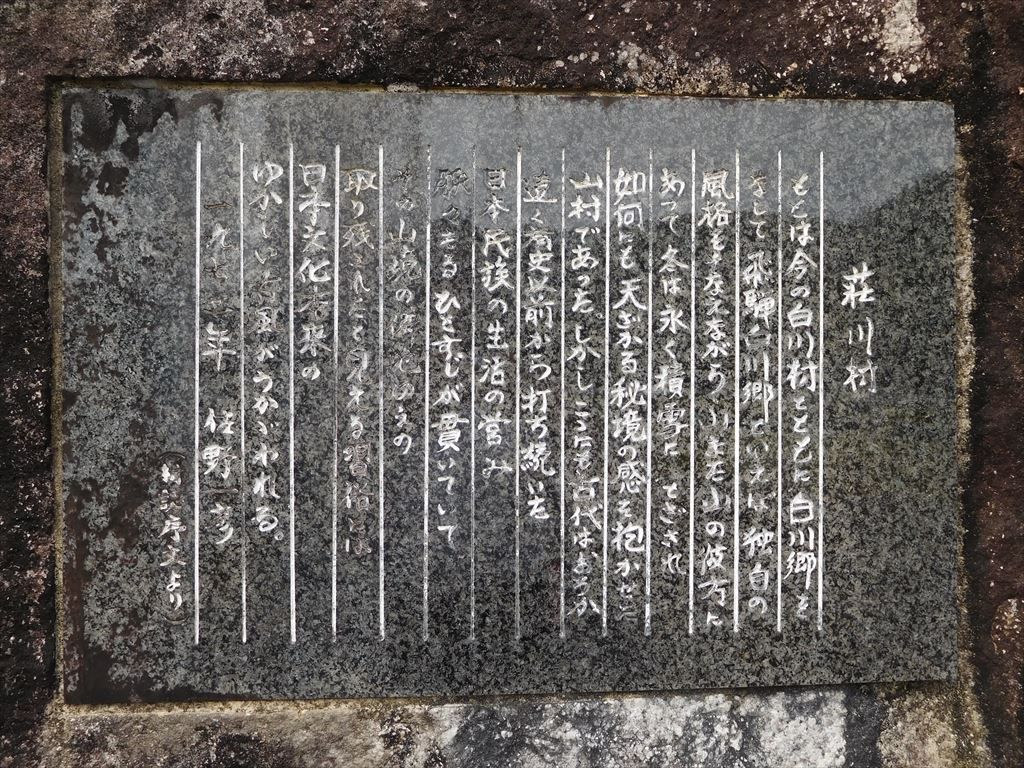 荘川村
もとは今の白川村とともに白川郷を
なして飛騨白川郷といえば独自の
風格をそなえながらいよいよ山の彼方に
あって冬は永く積雪にとざされ
如何にも天ざかる秘境の感を抱かせた
山村であった。しかしここにも古代はおろか
遠く有史以前から打ち続いた
日本民族の生活の営み
脈々たるひとすじが貫いていて
その山境の僻地ゆえの
取り残されたと見れる習俗には
日本文化本来の
ゆかしい がうかがわれる。
一九七 年 佐野一彦
( 序文より)